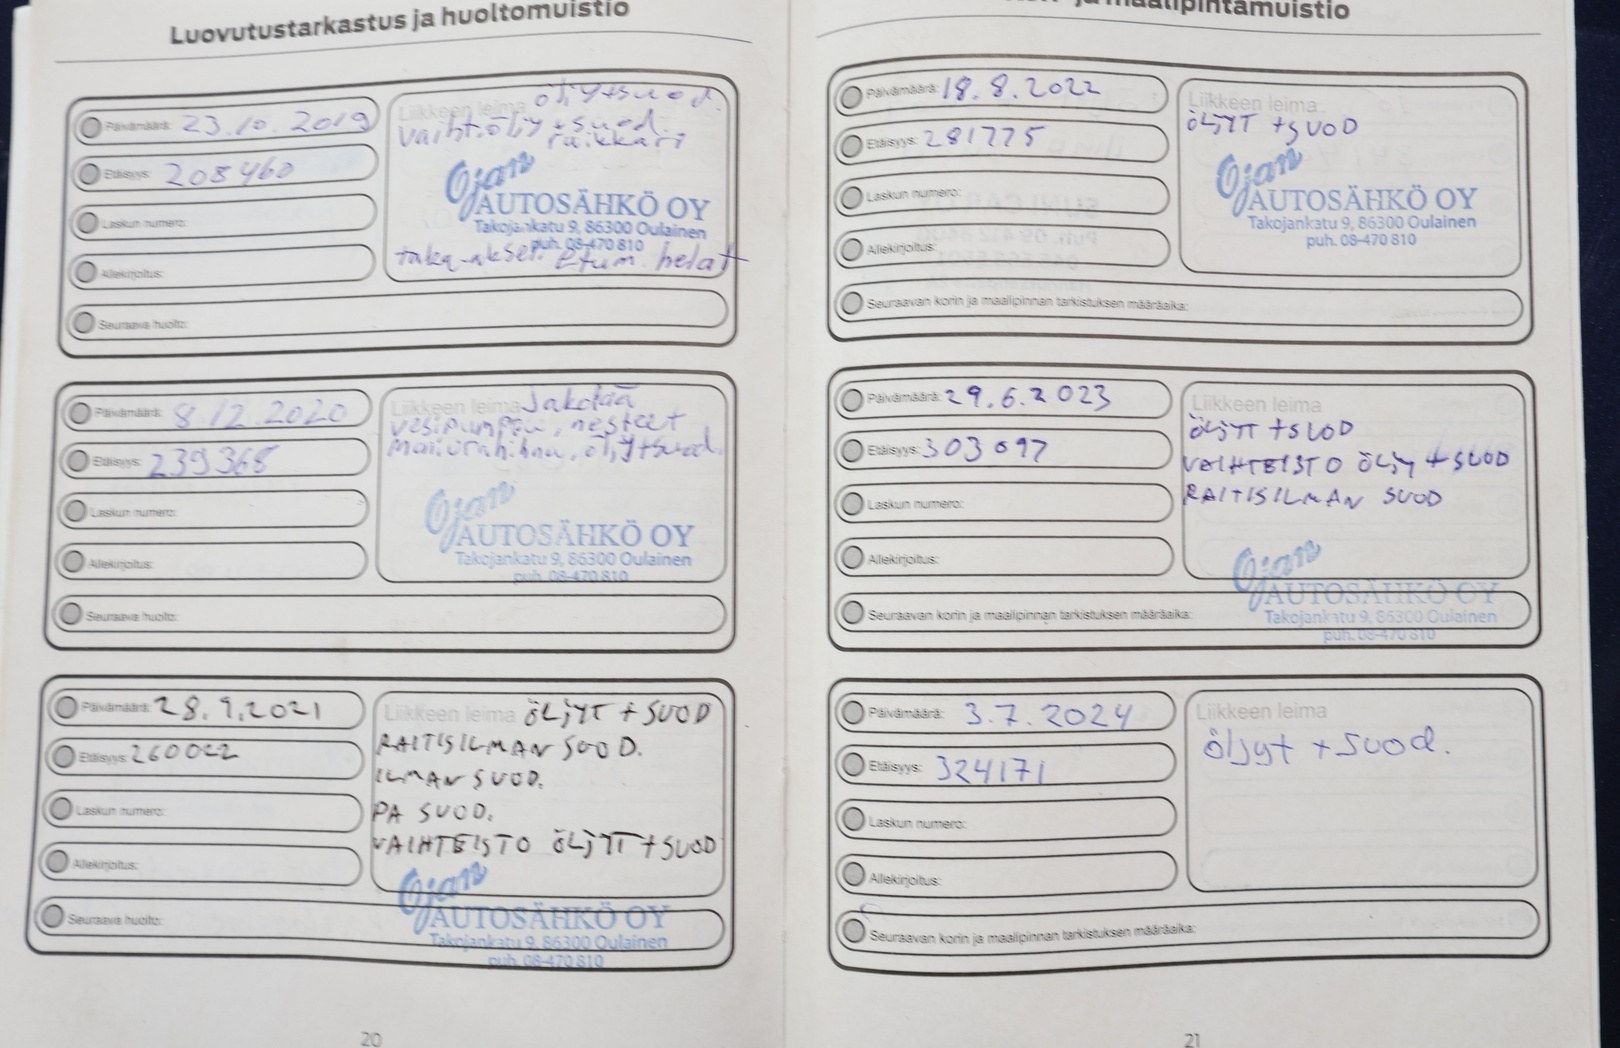 Luovutustarkastus ja huoltomuistio
Päivämäärä: 23.10.2019
Etäisyys: 208460
Laskun numero:
Allekirjoitus:
Seuraava huolto:
Liikkeen leima öljy+suod.
vaiht.öljy+suod.
Ojan
AUTOSÄHKÖ OY
Takojankatu 9, 86300 Oulainen
puh. 08-470 810
taka-aksel. Etum. helat
Päivämäärä: 8.12.2020
Etäisyys: 239368
Laskun numero:
Allekirjoitus:
Seuraava huolto:
Liikkeen leima Jakopää
vesipumppu, nesteet
öljy+suod.
Ojan
AUTOSÄHKÖ OY
Takojankatu 9, 86300 Oulainen
puh. 08-470 810
Päivämäärä: 28.9.2021
Etäisyys: 260022
Laskun numero:
Allekirjoitus:
Seuraava huolto:
Liikkeen leima ÖLJYT + SUOD
RAITISILMAN SUOD.
ILMAN SUOD.
PA SUOD.
VAIHTEISTO ÖLJYT + SUOD
Ojan
AUTOSÄHKÖ OY
Takojankatu 9, 86300 Oulainen
puh. 08-470 810
20
ja maalipintamuistio
Päivämäärä: 18.8.2022
Etäisyys: 281775
Laskun numero:
Allekirjoitus:
Seuraavan korin ja maalipinnan tarkistuksen määräaika:
Liikkeen leima
ÖLJYT + SUOD
Ojan
AUTOSÄHKÖ OY
Takojankatu 9, 86300 Oulainen
puh. 08-470 810
Päivämäärä: 29.6.2023
Etäisyys: 303097
Laskun numero:
Allekirjoitus:
Seuraavan korin ja maalipinnan tarkistuksen määräaika:
Liikkeen leima
ÖLJYT + SUOD
VAIHTEISTO ÖLJY + SUOD
RAITISILMAN SUOD
Ojan
AUTOSÄHKÖ OY
Takojankatu 9, 86300 Oulainen
puh. 08-470 810
Päivämäärä: 3.7.2024
Etäisyys: 324171
Laskun numero:
Allekirjoitus:
Seuraavan korin ja maalipinnan tarkistuksen määräaika:
Liikkeen leima
öljyt + suod.
21